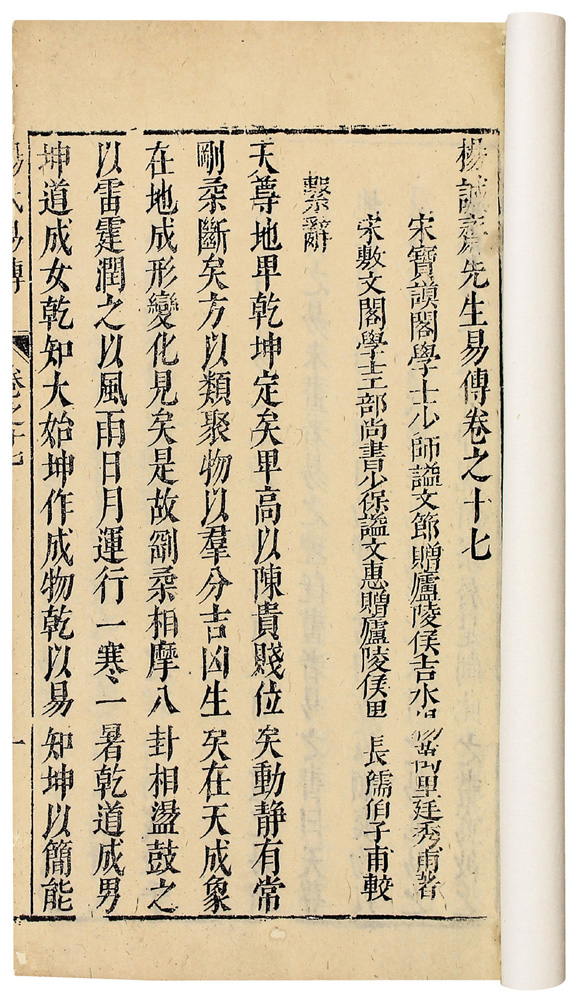 楊誠齋先生易傳卷之十七
宋寶謨閣學士少師謚文節贈廬陵侯吉水楊萬里廷秀甫著
宋敷文閣學士工部尚書少保謚文惠贈廬陵侯男長孺伯子甫較
繫辭
天尊地卑乾坤定矣卑高以陳貴賤位矣動靜有常
剛柔斷矣方以類聚物以羣分吉凶生矣在天成象
在地成形變化見矣是故剛柔相摩八卦相盪鼓之
以雷霆潤之以風雨日月運行一寒一暑乾道成男
坤道成女乾知大始坤作成物乾以易知坤以簡能
楊氏易傳 卷之十七 一